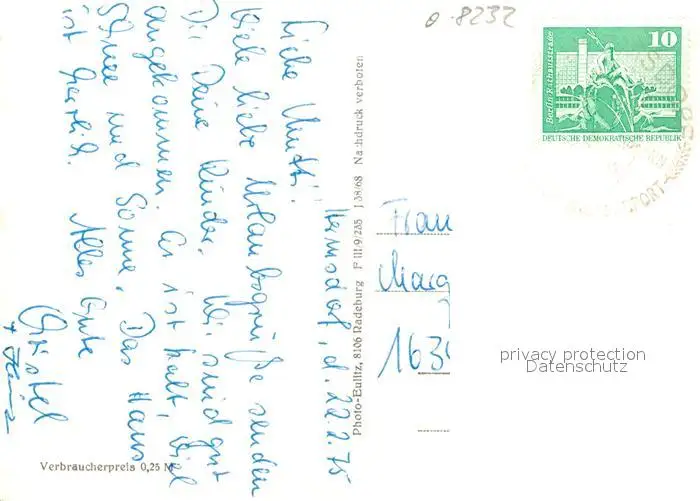 Hermsdorf, d. 22.2.75
Liebe Mutti!
Viele liebe Urlaubsgrüße senden
Dir Deine Kinder. Wir sind gut
angekommen. Es ist kalt, viel
Schnee und Sonne. Das Haus
ist herrlich. Alles Gute
Christel
+ Heinz
Verbraucherpreis 0,25 M
Photo-Eulitz, 8106 Radeburg F III/9/235 J 38/68 Nachdruck verboten
0-8232
10
Berlin-Rathausstraße
DEUTSCHE DEMOKRATISCHE REPUBLIK
Frau
Marg
163
privacy protection
Datenschutz